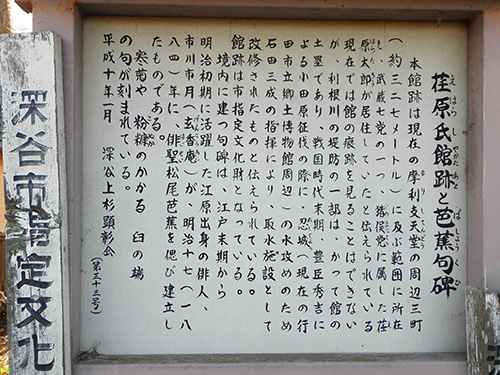 荏原氏館跡と芭蕉句碑
えはらしやかたあと ばしょうくひ
本館跡は現在の摩利支天堂の周辺三町
(約三二七メートル)に及ぶ範囲に所在
し、武蔵七党の一つ、猪俣党に属した荏
原太郎が居住していたと伝えられている
現在では館の痕跡を見ることはできない
が、利根川の堤防の一部は、かつて館の
土塁であり、戦国時代末期、豊臣秀吉に
よる小田原征伐の際に、忍城(現在の行
田市立郷土博物館周辺)の水攻めのため
石田三成の指揮により、取水施設として
改修されたものと伝えられている。
館跡は市指定文化財となっている。
境内に建つ句碑は、江戸末期から
明治初期に活躍した江原出身の俳人、
市川市月(玄香庵)が、明治十七(一八
八四)年に、俳聖松尾芭蕉を偲び建立し
たものである。
寒菊や 粉糠のかかる 臼の端
の句が刻まれている。
平成十年一月 深谷上杉顕彰会
(第三十三号)
深谷市指定文化